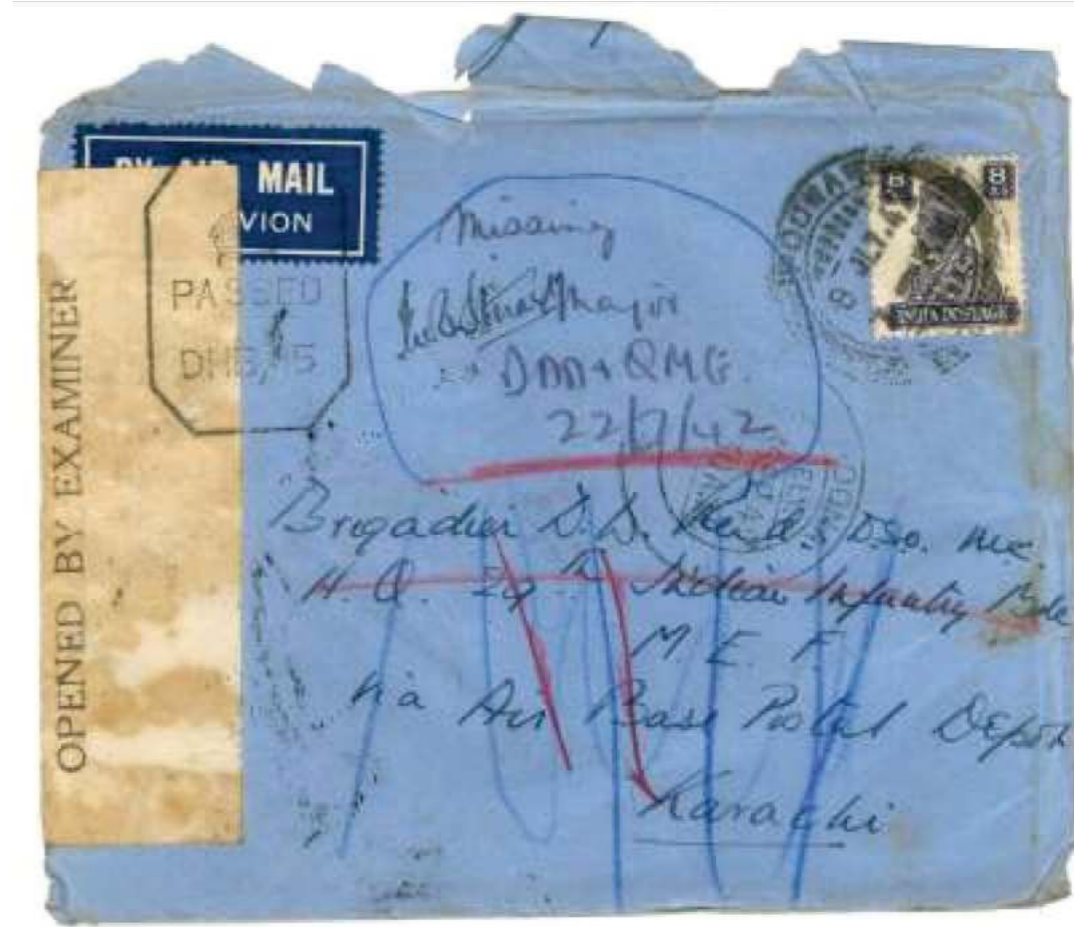 MAIL
AVION
PASSED
DHB/15
OPENED BY EXAMINER
8 8
INDIA POSTAGE
Missing
Major
DAA+QMG.
22/7/42
Brigadier D.D. Reid. Dso. mc.
H.Q. 29th Indian Infantry Bde
M. E. F.
Via Air Base Postal Depot
Karachi